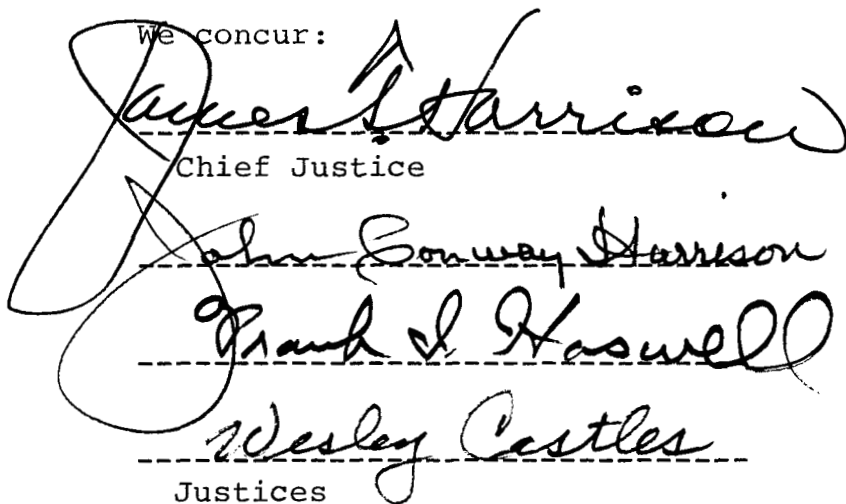 We concur:
James T. Harrison
Chief Justice
John Conway Harrison
Frank I. Haswell
Wesley Castles
Justices